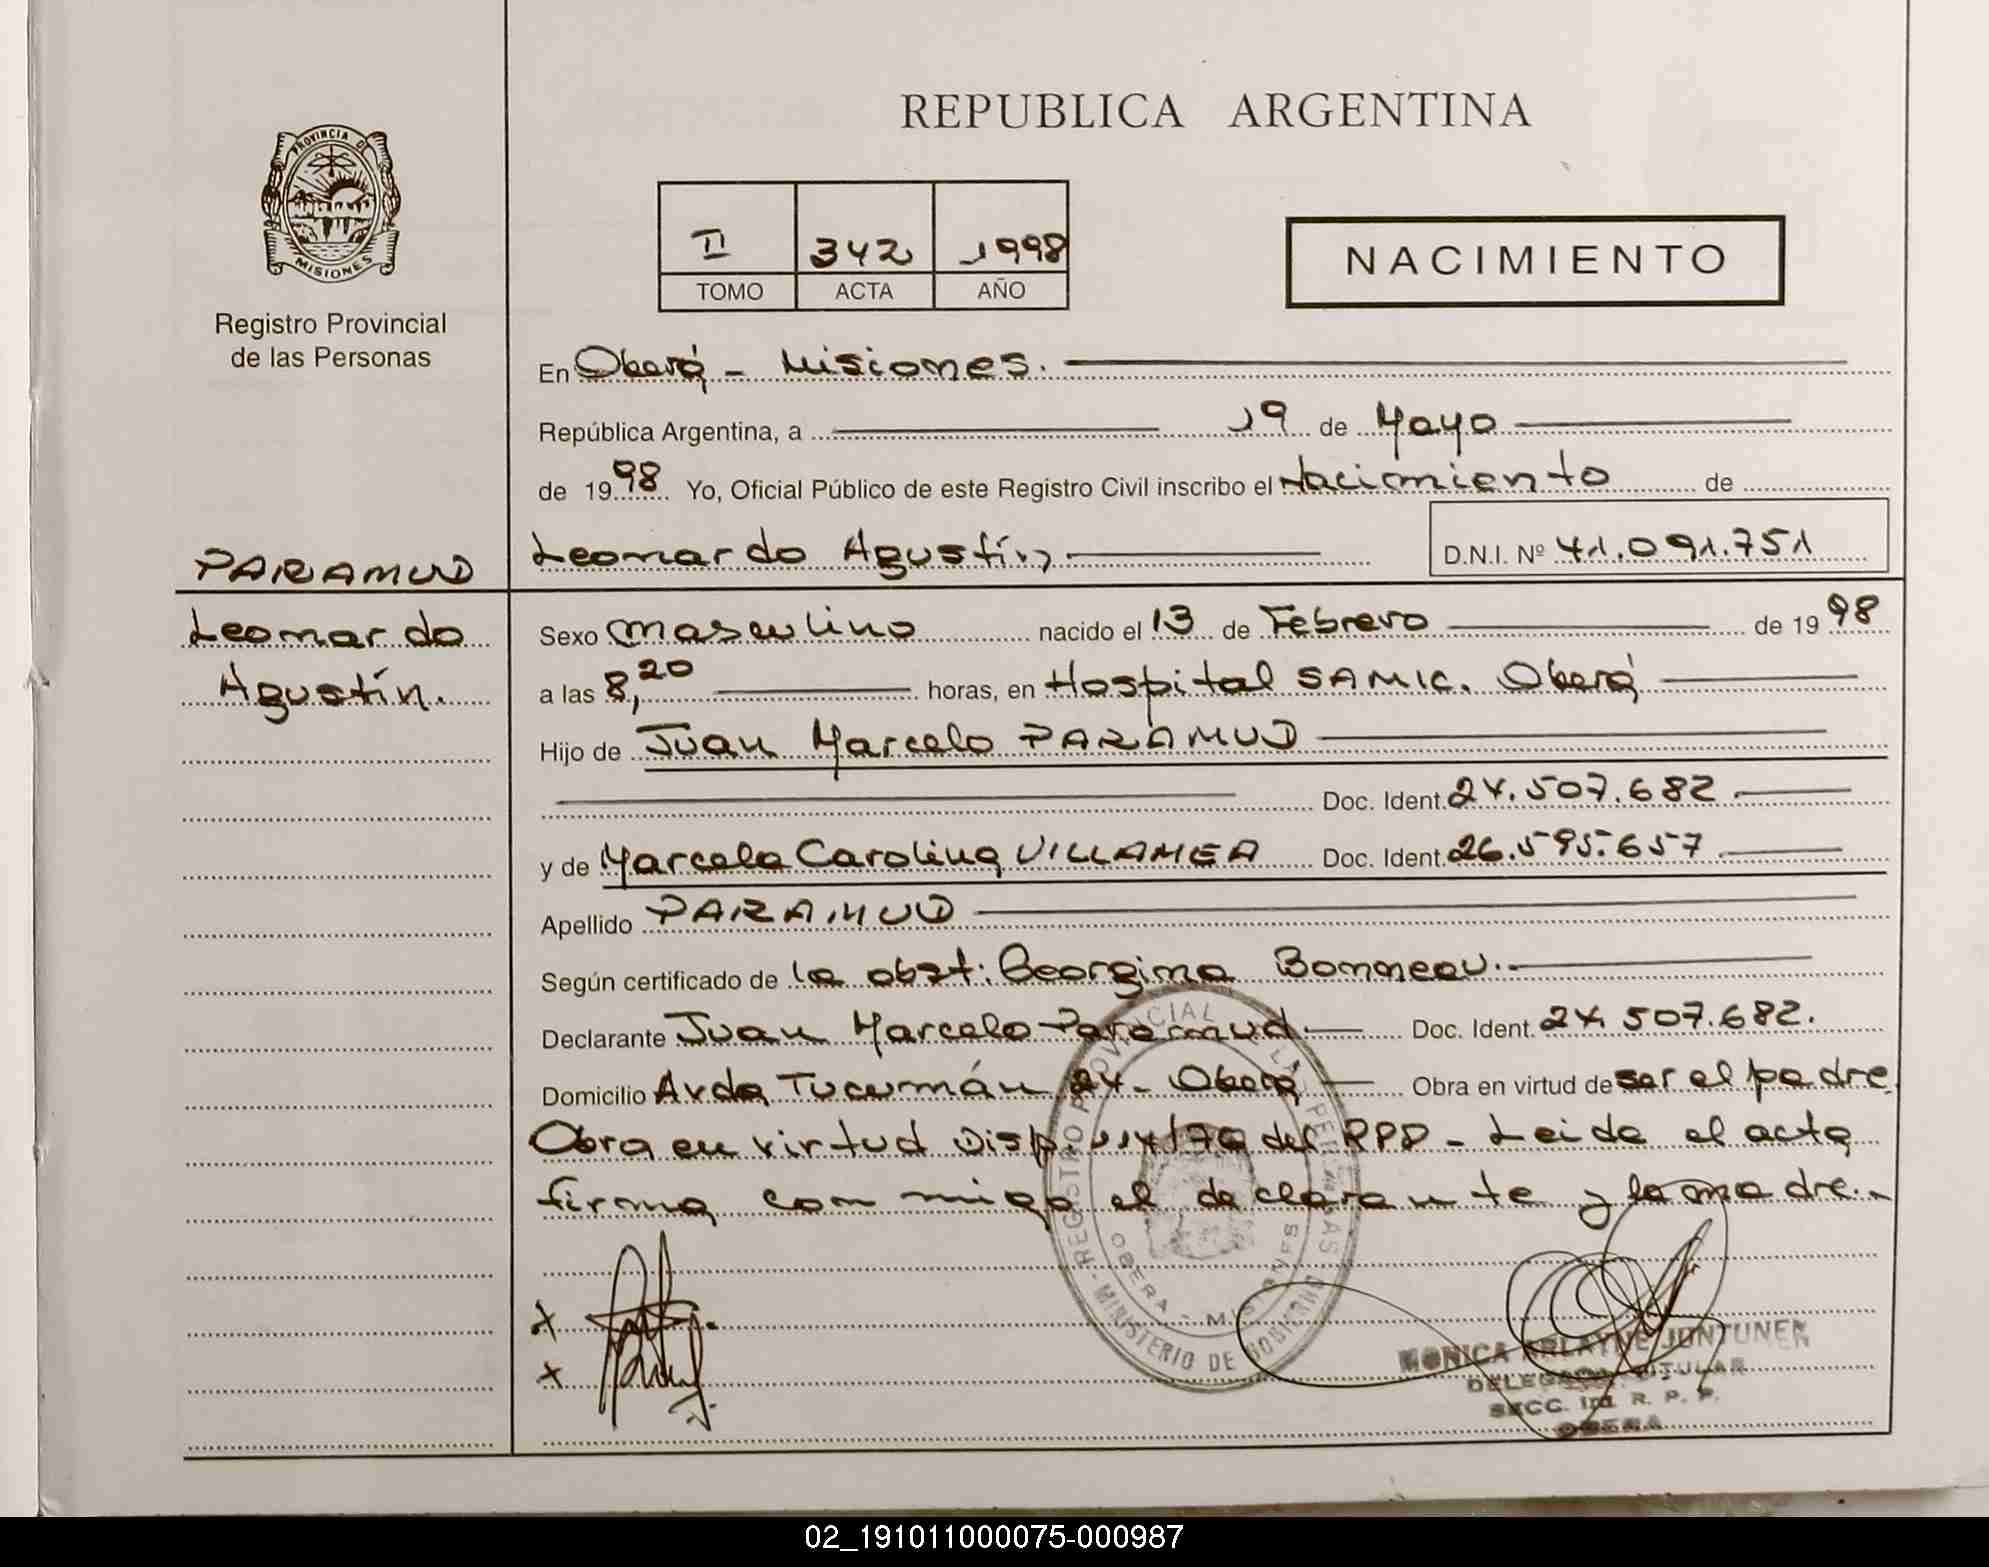 REPUBLICA ARGENTINA
PROVINCIA DE
MISIONES
Registro Provincial
de las Personas
II 342 1998
TOMO ACTA AÑO
NACIMIENTO
En Oberá - Misiones.
República Argentina, a 19 de Mayo
de 1998 Yo, Oficial Público de este Registro Civil inscribo el Nacimiento de
PARAMUD
Leonardo Agustín
Leonardo Agustín D.N.I. Nº 41.091.751
Agustín.
Sexo masculino nacido el 13 de Febrero de 1998
a las 8,20 horas, en Hospital SAMIC. Oberá
Hijo de Juan Marcelo PARAMUD
Doc. Ident. 24.507.682
y de Marcela Carolina VILLAMEA Doc. Ident. 26.595.657
Apellido PARAMUD
Según certificado de la obst: Georgina Bonneau.
Declarante Juan Marcelo Paramud Doc. Ident. 24.507.682.
Domicilio Avda Tucumán 24 - Oberá Obra en virtud de ser el padre
Obra en virtud Disp. 114/70 del RPP - Leida el acta
firma conmigo el declarante y la madre.-
x
x
REGISTRO PROVINCIAL DE LAS PERSONAS
OBERA - MISIONES
- MINISTERIO DE GOBIERNO
MONICA ARLAYNE JUNTUNEN
DELEGADA TITULAR
SECC. 1ra R. P. P.
OBERA
02_191011000075-000987